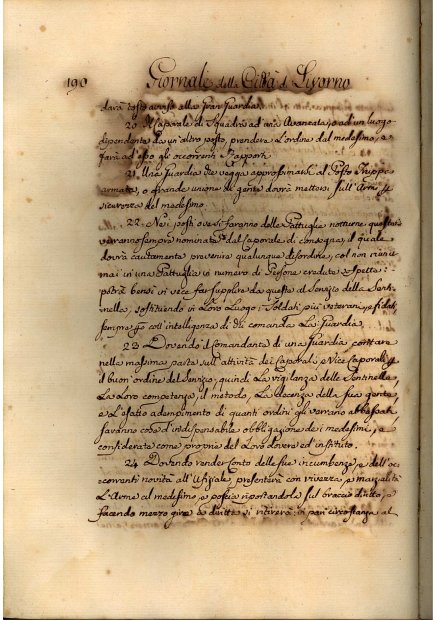 190 Giornale della Città di Livorno
darà tosto avviso alla Gran Guardia.
20. Il Caporale di Squadra ad una Avanzata, o ad un luogo
dipendente da un'altro posto, prenderà l'ordine dal medesimo, e
farà ad esso gli occorrenti Rapporti.
21. Una Guardia che vegga approssimarsi al Posto Truppe
armate, o grande unione di gente dovrà mettersi sull'Arme p
sicurezza del medesimo.
22. Nei posti ove si faranno delle Pattuglie notturne queste
verranno sempre nominate dal Caporale di consegna, il quale
dovrà cautamente prevenire qualunque disordine, col non riunir
mai in una Pattuglia un numero di Persone credute sospette:
potrà bensì in vece far supplire da queste al Servizio della Senti-
nella, sostituendo in Loro Luogo i Soldati più veterani, e fidati,
sempre p con intelligenza di chi comanda La Guardia.
23. Dovendo il Comandante di una Guardia contare
nella massima parte sull'attività dei Caporali, e Vice Caporali p
il buon'ordine del Servizio, quindi La vigilanza delle Sentinelle,
La Loro competenza, il metodo, La decenza della sua gente,
e L'esatto adempimento di quanti ordini gli verranno abbassati
saranno cose d'indispensabile obbligazione de' medesimi, e
considerate come proprie del Loro dovere ed instituto.
24. Dovendo render Conto delle sue incumbenze, e dell'oc
correnti novità all'Ufiziale, presenterà con vivezza, e marzialità
L'Arme al medesimo, e poscia riportandola sul braccio diritto, e
facendo mezzo giro a diritta si ritirerà: in pari circostanza al